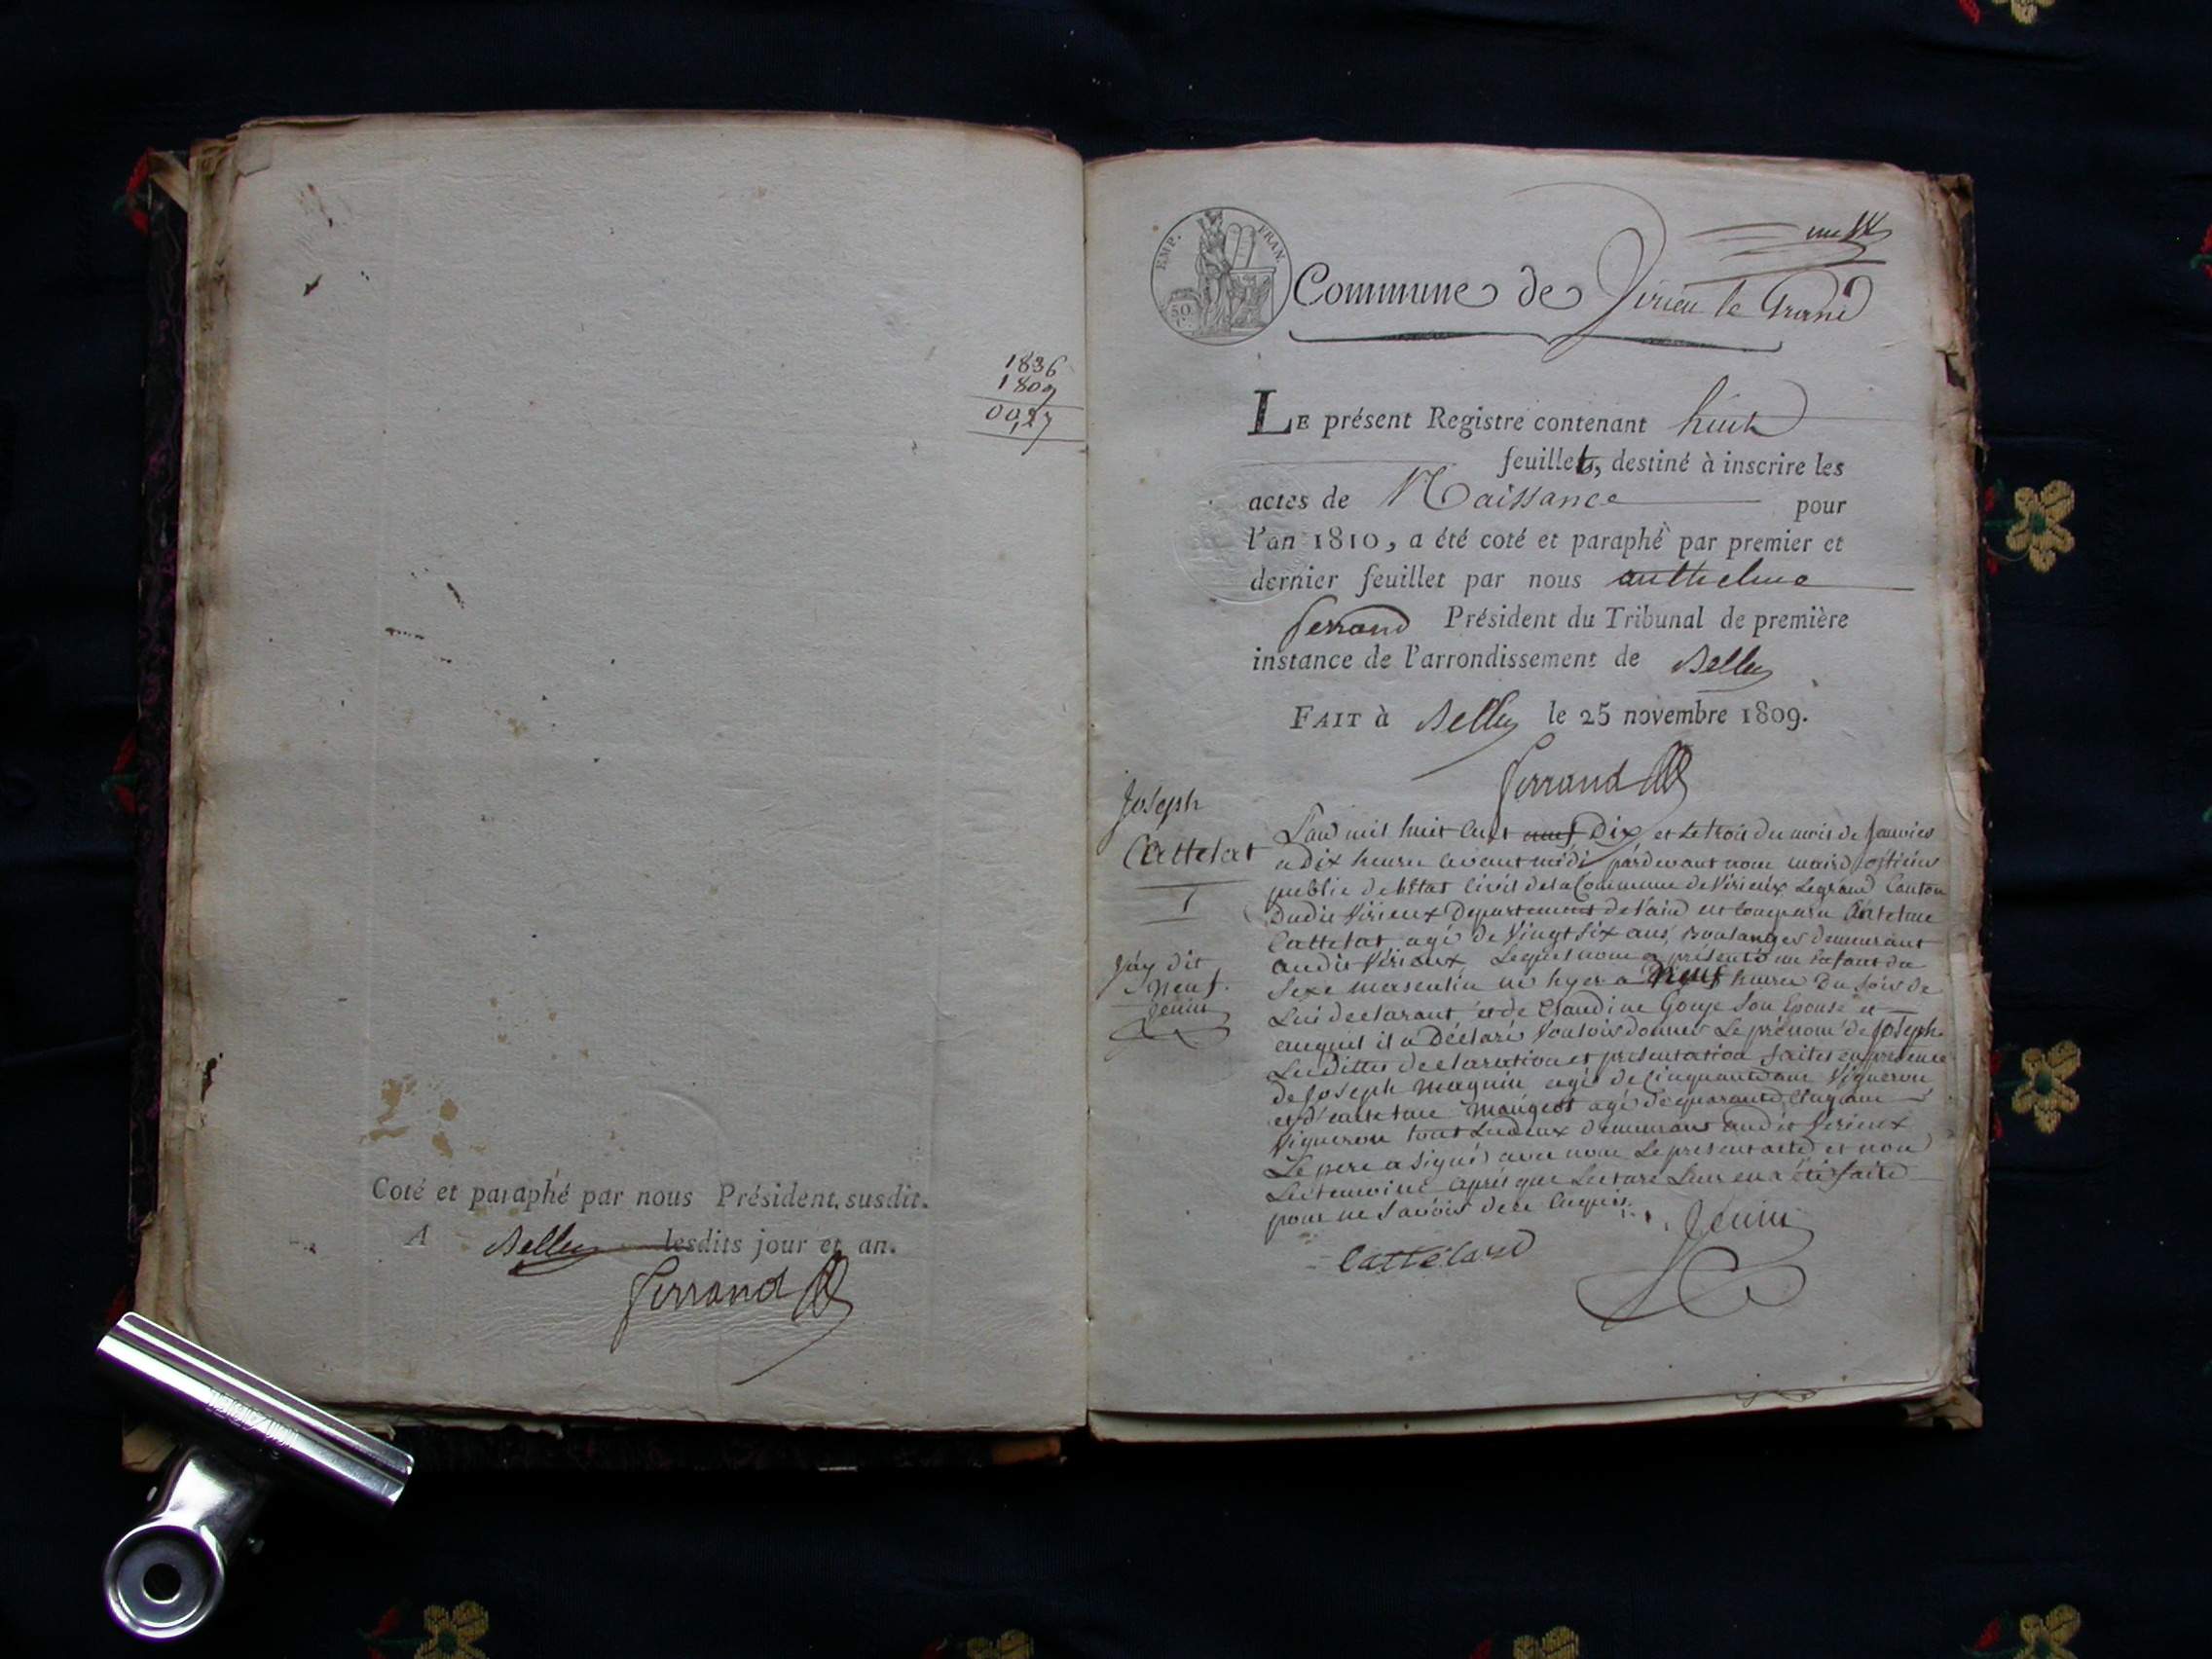 1836
1809
00,27
Coté et paraphé par nous Président susdit.
A Belley lesdits jour et an.
Ferrand
EMP. FRAN.
50
Commune de Virieu le Grand
LE présent Registre contenant huit
feuillets, destiné à inscrire les
actes de Naissance pour
l'an 1810, a été coté et paraphé par premier et
dernier feuillet par nous anthelme
ferrand Président du Tribunal de première
instance de l'arrondissement de Belley
FAIT à Belley le 25 novembre 1809.
Ferrand
Joseph
Cattelat
1
Jay dit
Neuf.
Jenin
L'an mil huit Cent neuf Dix et Le trois du mois de Janvier
a Dix heures avant midi pardevant nous maire officier
public de l'Etat Civil de la Commune de Virieux Legrand Canton
Dudit Virieux Departement de l'ain est comparu Antelme
Cattelat agé de Vingt six ans, Boulanger demeurant
audit Virieux Lequel nous a présenté un Enfant du
Sexe masculin né hyer a Neuf heures Du soir de
Lui declarant et de Claudine Gouje Son Epouse et
auquel il a Déclaré Vouloir donner Le prénom de Joseph
Lesdittes declaration et presentation faites en presence
de Joseph Magnin agé de Cinquante deux Vigneron
et d'antelme Maugeot agé de quarante
Vigneron tout Les deux demeurant audit Virieux
Le pere a signé avec nous Le present acte et non
Les temoins après que Lecture Leur en a été faite
pour ne savoir de ce enquis.
Jenin
Cattelard